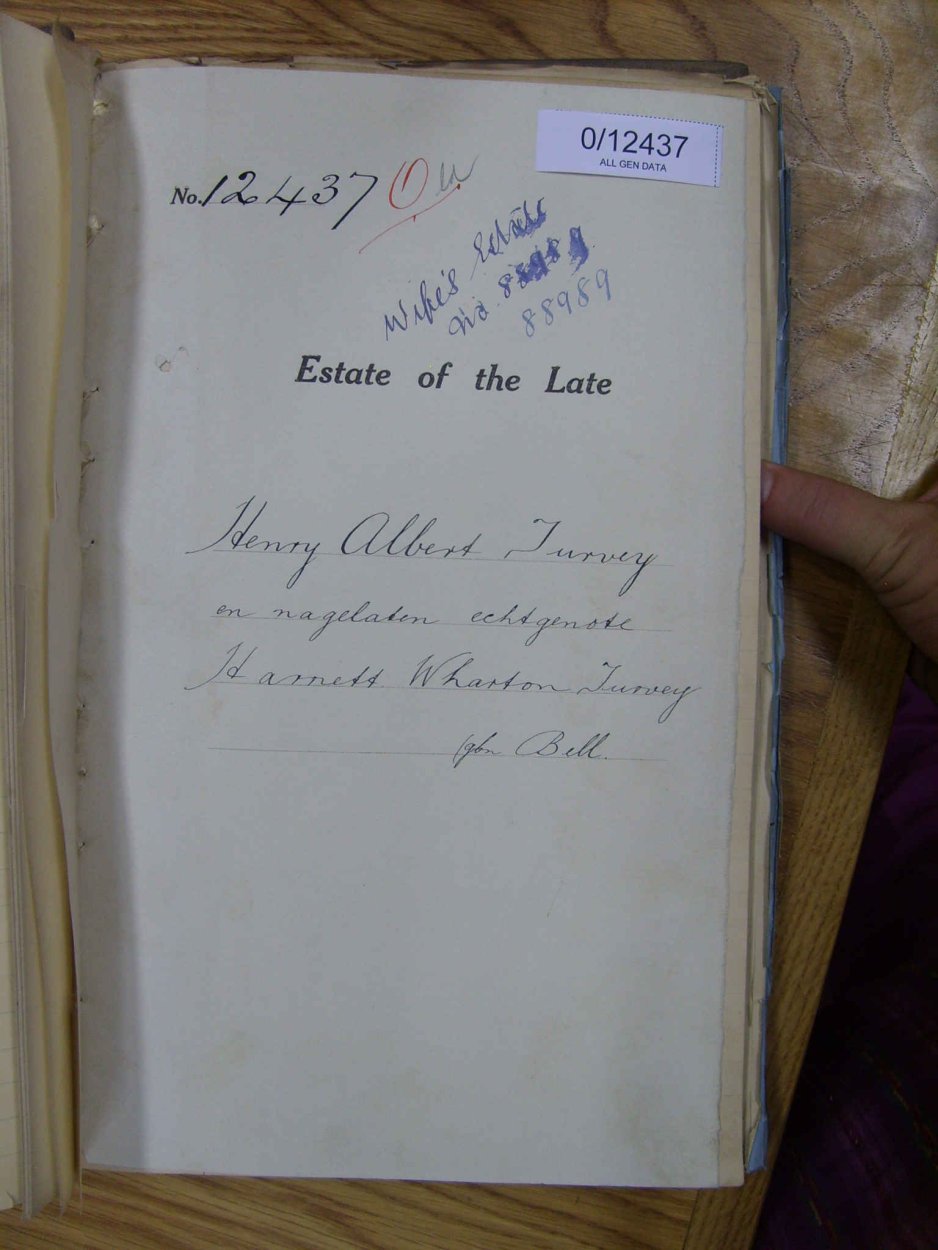 0/12437
ALL GEN DATA
No. 12437 O
Wife's Estate
No. 88989
88989
Estate of the Late
Henry Albert Turvey
en nagelaten echtgenote
Harnett Wharton Turvey
(gbn Bell.